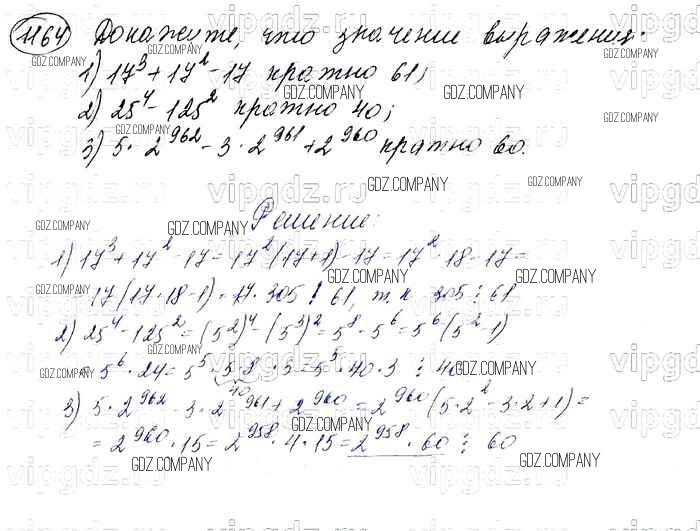 1164 Докажите, что значение выражения:
1) 17³ + 17² - 17 кратно 61;
2) 25⁴ - 125² кратно 40;
3) 5 · 2⁹⁶² - 3 · 2⁹⁶¹ + 2⁹⁶⁰ кратно 60.
Решение:
1) 17³ + 17² - 17 = 17²(17+1) - 17 = 17² · 18 - 17 =
= 17(17·18-1) = 17 · 305 ⋮ 61, т.к 305 ⋮ 61
2) 25⁴ - 125² = (5²)⁴ - (5³)² = 5⁸ - 5⁶ = 5⁶(5²-1)
= 5⁶ · 24 = 5⁵ · 5·8 · 3 = 5⁵ · 40 · 3 ⋮ 40
40
3) 5 · 2⁹⁶² - 3 · 2⁹⁶¹ + 2⁹⁶⁰ = 2⁹⁶⁰(5·2² - 3·2+1) =
= 2⁹⁶⁰ · 15 = 2⁹⁵⁸ · 4 · 15 = 2⁹⁵⁸ · 60 ⋮ 60
GDZ.COMPANY
vipgdz.ru